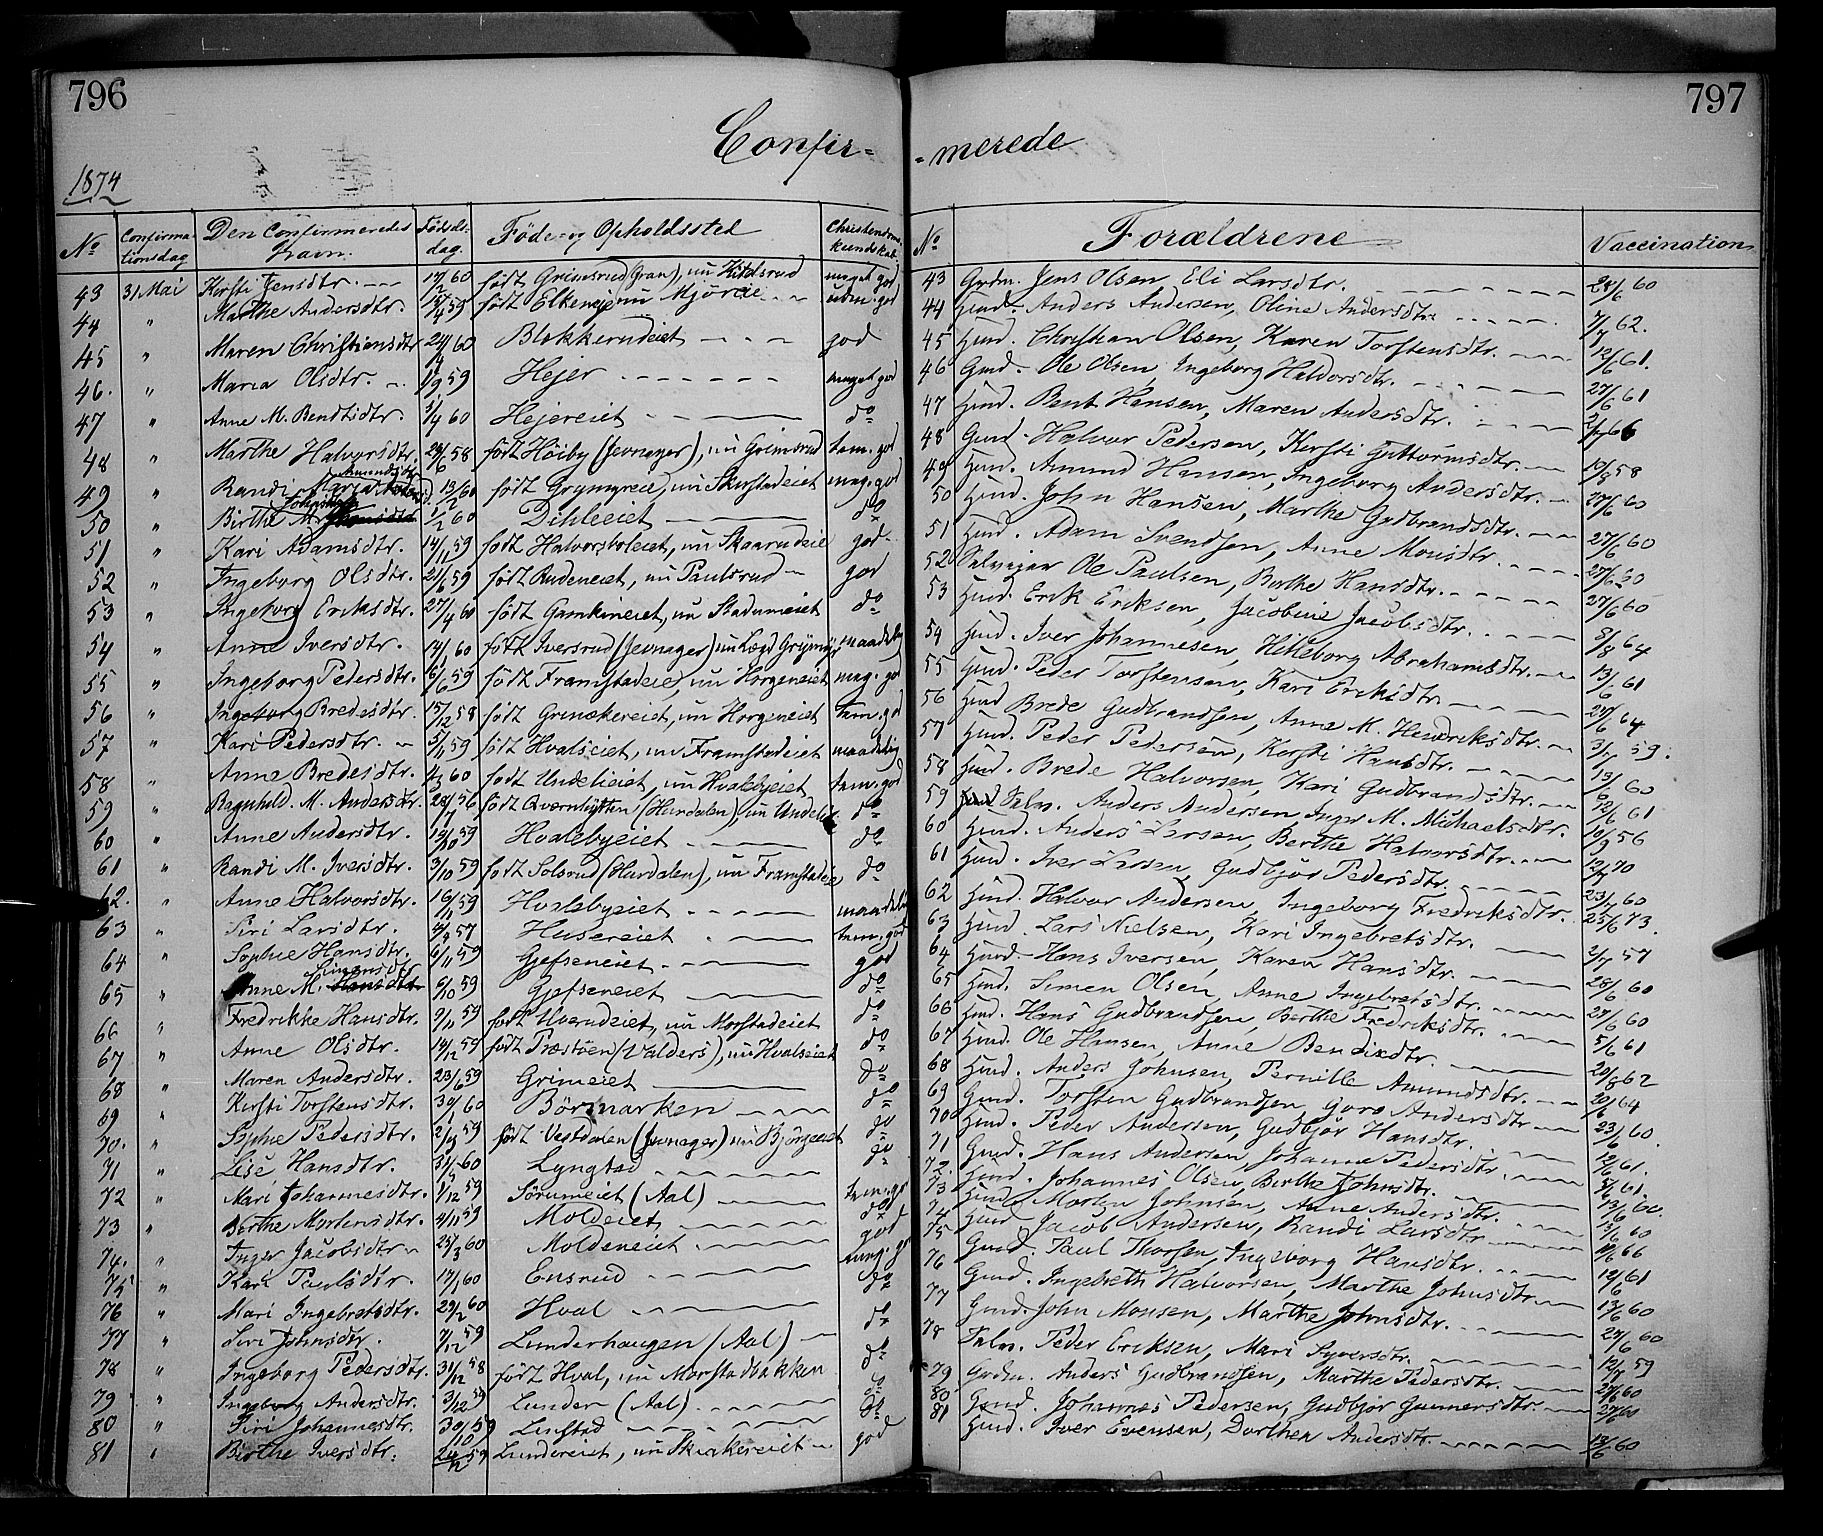 796
797
Confir-
-merede
1874
No Confirma- Den Confirmeredes Fødsels- Føde- og Opholdssted Christendoms-
tionsdag Navn. dag. kundskab.
No Forældrene Vaccination
43 31 Mai Kersti Jensdtr. 60 født Grimsrud (Gran), nu Kittelsrud meget god
44 " Marthe Andersdtr. 59 født Elkeneje nu Mjöreie udm. god
45 " Maren Christiansdtr 60 Blekkerudeiet god
46. " Maria Olsdtr. 59 Hejer meget god
47 " Anne M. Bendtsdtr. 60 Hejereiet do
48 " Marthe Halvorsdtr. 58 født Höiby (Jevnager), nu Grimsrud tem. god
49 " Randi Maria Amundsdtr 13/2 60 født Grymyreie, nu Skarstadeiet meg. god
50 " Birthe M. Johnsdtr 1/2 60 Dihleeiet do
51 " Kari Adamsdtr. 14/11 59 født Halvorsboleiet, nu Skaarudeie god
52 " Ingeborg Olsdtr. 21/6 59 født Rudeneiet, nu Paulsrud god
53 " Ingeborg Eriksdtr. 27/4 60 født Gamkineiet, nu Stadumeiet do
54 " Anne Iversdtr. 60 født Iversrud (Jevnager) nu Lægd Grymyr maadelig
55 " Ingeborg Pedersdtr. 6/6 59 født Framstadeie, nu Horgeneiet meg. god
56 " Ingeborg Bredesdtr. 15/12 58 født Grinakereiet, nu Horgeneiet tem. god
57 " Kari Pedersdtr. 5/11 59 født Hvalseiet, nu Framstadeiet maadelig
58 " Anne Bredesdtr. 60 født Undelieiet, nu Hvalebyeiet tem. god
59 " Ragnhild. M. Andersdtr. 28/7 56 født Qvernhytten (Hurdalen), nu Undelie do
60 " Anne Andersdtr. 12/10 59 Hvalebyeiet do
61 " Randi M. Iversdtr. 3/10 59 født Solsrud (Hurdalen), nu Framstadeie do
62. " Anne Halvorsdtr. 16/11 59 Hvalebyeiet maadelig
63 " Siri Larsdtr. 57 Husereiet tem. god
64 " Sophie Hansdtr. 6/11 59 Gjefseneiet god
65 " Anne M. Simensdtr. 5/10 59 Gjefseneiet do
66 " Fredrikke Hansdtr. 9/11 59 født Hverudeiet, nu Morstadeiet do
67 " Anne Olsdtr. 14/12 59 født Præstöen (Valders), nu Hvalseiet do
68 " Maren Andersdtr. 23/6 59 Grimeiet do
69 " Kersti Torstensdtr. 30/1 60 Börsmarken do
70. " Sophie Pedersdtr. 59 født Vestdalen (Jevnager) nu Bjöngeeiet do
71 " Lise Hansdtr. 60 Lyngstad do
72 " Mari Johannesdtr. 1/12 59 Sörumeiet (Aal) tem. god
73 " Berthe Mortensdtr. 4/11 59 Moldeiet do
74. " Inger Jacobsdtr 25/3 60 Moldeneiet god
75 " Kari Paulsdtr. 17/1 60 Ensrud meg. god
76 " Mari Ingebretsdtr. 29/2 60 Hval do
77 " Siri Johnsdtr. 7/12 59 Lunderhaugen (Aal) do
78 " Ingeborg Pedersdtr. 31/12 58 født Hval, nu Morstadbakken do
79 " Ingeborg Andersdtr. 3/12 59 Lunder (Aal) do
80 " Siri Johannesdtr. 30/10 59 Linstad do
81 " Birthe Iversdtr. 59 Lundereiet, nu Skiakereiet god
43 Grdm. Jens Olsen, Eli Larsdtr. 28/6 60
44 Hmd. Anders Andersen, Oline Andersdtr. 7/7 62.
45 Hmd. Christian Olsen, Karen Torstensdtr. 12/6 61.
46 Gmd. Ole Olsen, Ingeborg Halvorsdtr. 27/6 61
47 Hmd. Bent Hansen, Maren Andersdtr. 66
48 Gmd. Halvor Pedersen, Kersti Guttormsdtr. 58
49 Hmd. Amund Hansen, Ingeborg Andersdtr. 27/6 60
50 Hmd. John Hansen, Marthe Gudbrandsdtr. 27/6 60
51 Hmd. Adam Svendsen, Anne Monsdtr. 27/6 60
52 Ole Paulsen, Berthe Hansdtr. 27/6 60
53 Hmd. Erik Eriksen, Jacobine Jacobsdtr. 64
54 Hmd. Iver Johannesen, Hilleborg Abrahamsdtr. 13/6 61
55 Hmd. Peder Torstensen, Kari Eriksdtr 64
56 Hmd Brede Gudbrandsen, Anne M. Hendriksdtr. 59.
57 Hmd. Peder Pedersen, Kersti Hansdtr. 13/6 60
58 Hmd. Brede Halvorsen, Kari Gudbrandsdtr. 12/6 61
59 Inlm. Anders Andersen, Inger M. Michaelsdtr. 10/9 56
60 Hmd. Anders Larsen, Berthe Halvorsdtr. 70
61 Hmd. Iver Larsen, Gudbjör Pedersdtr. 60
62 Hmd. Halvor Andersen, Ingeborg Fredriksdtr. 25/6 73.
63 Hmd. Lars Nielsen, Kari Ingebretsdtr. 2/7 57
64 Hmd. Hans Iversen, Karen Hansdtr. 28/6 60
65 Hmd. Simen Olsen, Anne Ingebretsdtr. 27/6 60
66 Hmd. Hans Gudbrandsen, Berthe Fredriksdtr. 5/6 61
67 Hmd. Ole Hansen, Anne Bendixdtr. 20/8 62
68 Hmd. Anders Johnsen, Pernille Amundsdtr. 64
69 Gmd. Torsten Gudbrandsen, Goro Andersdtr 23/6 60.
70 Hmd. Peder Andersen, Gudbjör Hansdtr. 12/6 61.
71 Gmd. Hans Andersen, Johanne Pedersdtr. 61
72. Hmd. Johannes Olsen, Berthe Johnsdtr. 13/6 60.
73 Hmd. Morten Johnsen, Anne Andersdtr. 13/6 60
74 Hmd. Jacob Andersen, Randi Larsdtr 66
75 Gmd. Paul Thorsen, Ingeborg Hansdtr. 12/6 61
76 Gmd. Ingebreth Halvorsen, Marthe Johnsdtr. 13/6 60
77 Gmd. John Monsen, Marthe Johnsdtr. 27/6 60
78 Inlm. Peder Eriksen, Mari Syversdtr. 59
79 Grdm. Anders Gudbrandsen, Marthe Pedersdtr. 60
80 Gmd. Johannes Pedersen, Gudbjör Gunnersdtr. 27/6 60
81 Hmd. Iver Evensen, Dorthea Andersdtr. 13/6 60